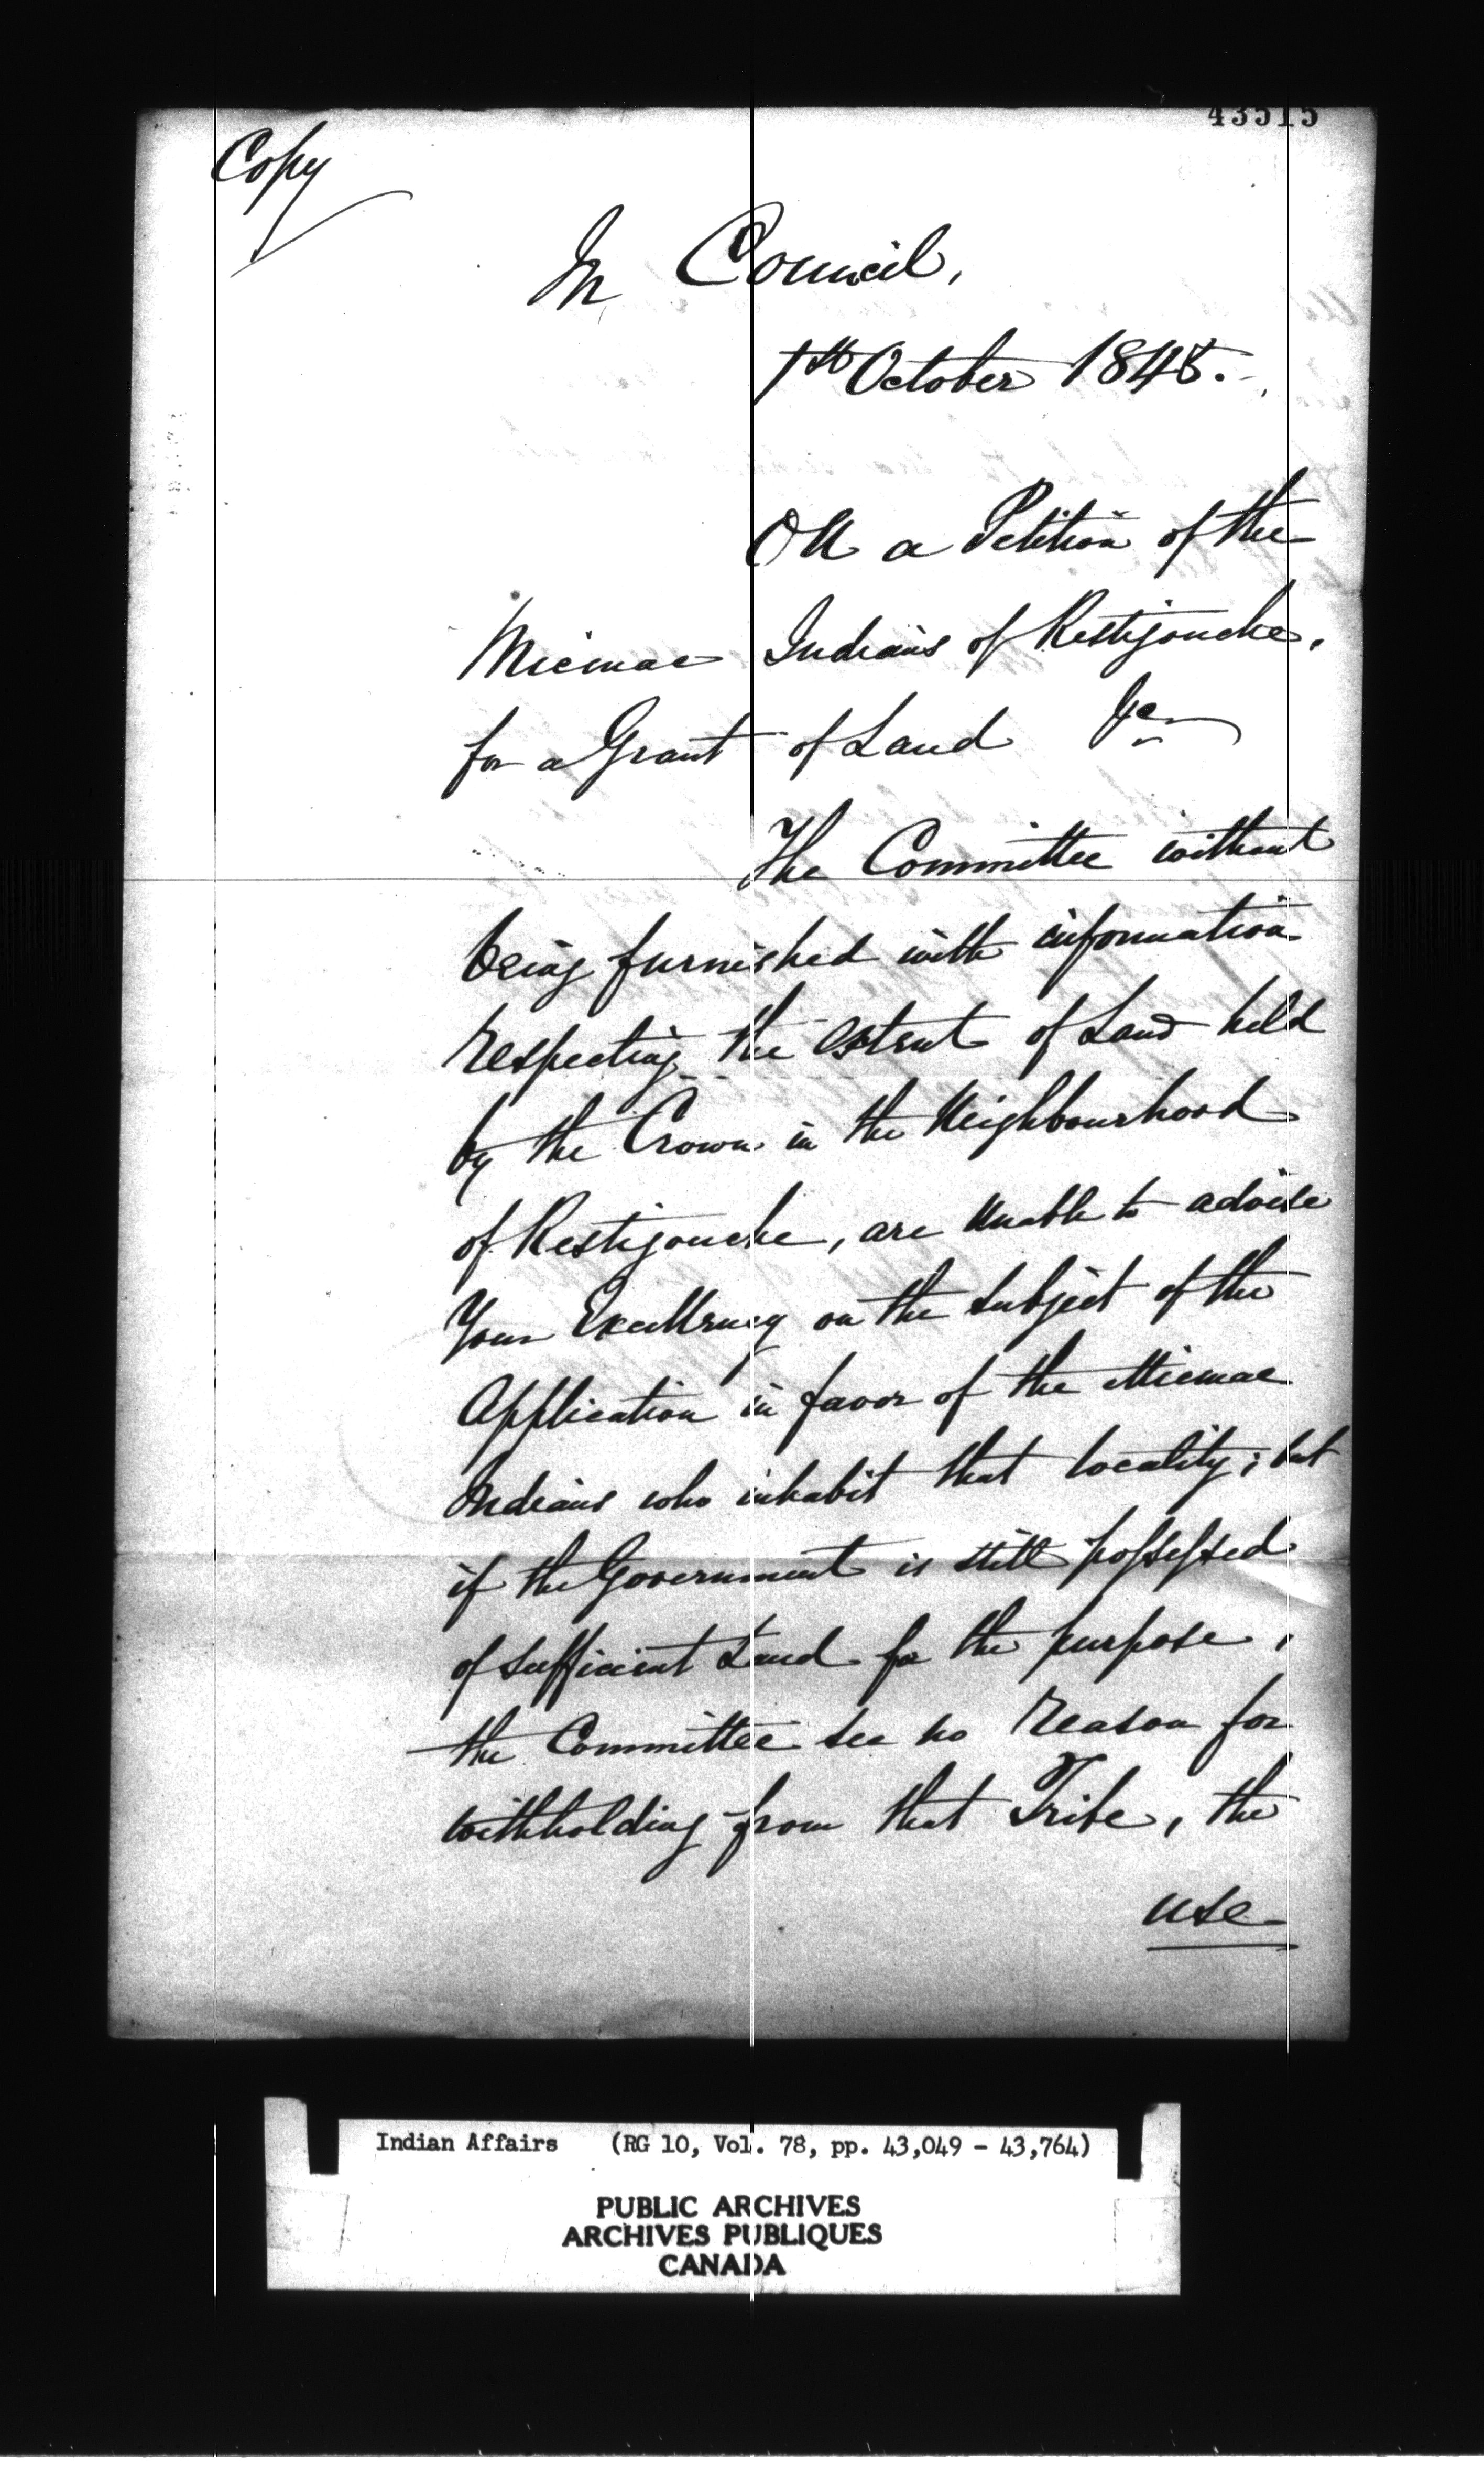 43515
Copy
In Council,
1st October 1845.
On a Petition of the
Micmac Indians of Restigouche,
for a Grant of Land &c
The Committee without
being furnished with information
respecting the extent of Land held
by the Crown in the Neighbourhood
of Restigouche, are unable to advise
Your Excellency on the subject of the
Application in favor of the Micmac
Indians who inhabit that locality; but
if the Government is still possessed
of sufficient Land for the purpose,
the Committee see no reason for
withholding from that Tribe, the
use
Indian Affairs (RG 10, Vol. 78, pp. 43,049 - 43,764)
PUBLIC ARCHIVES
ARCHIVES PUBLIQUES
CANADA